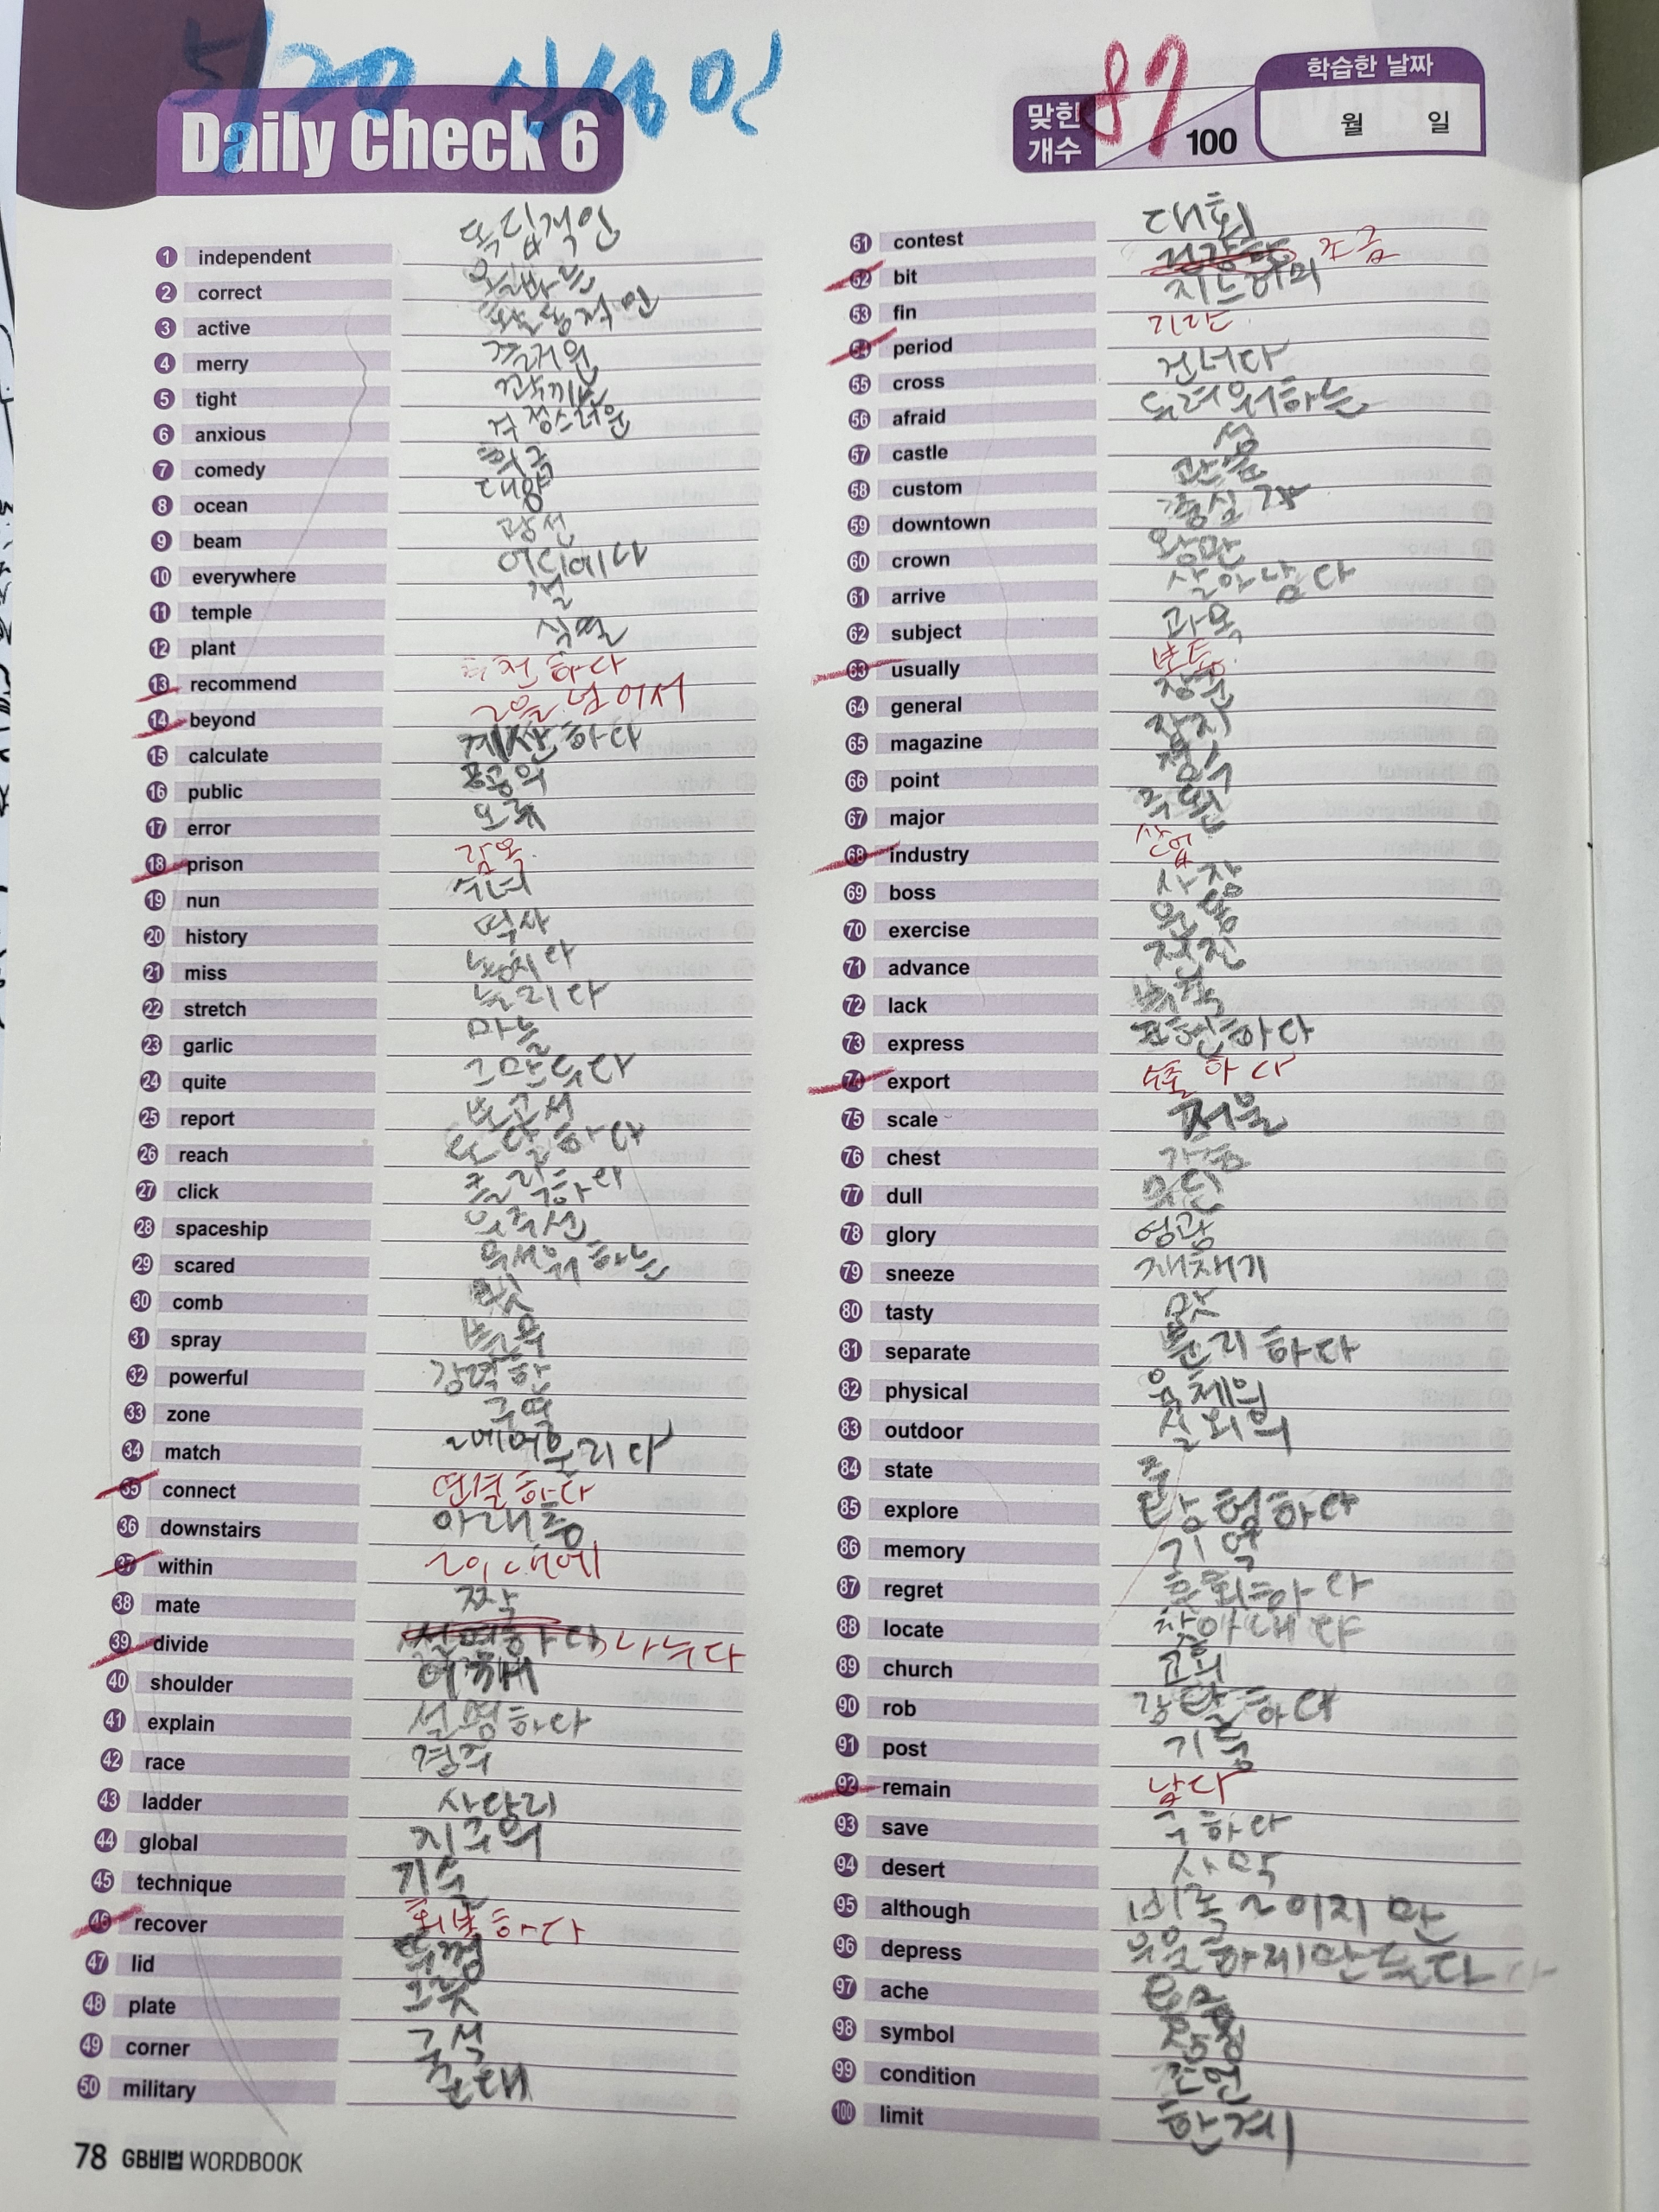 5/20
Daily Check 6
맞힌 개수 87 / 100
학습한 날짜
월 일
1 independent 독립적인
2 correct
3 active
4 merry 즐거운
5 tight
6 anxious 걱정스러운
7 comedy 희극
8 ocean 대양
9 beam 광선
10 everywhere 어디에나
11 temple 절
12 plant 식물
13 recommend 추천하다
14 beyond ~을 넘어서
15 calculate 계산하다
16 public 공공의
17 error 오류
18 prison 감옥
19 nun 수녀
20 history 역사
21 miss 놓치다
22 stretch 늘리다
23 garlic 마늘
24 quite 그만두다
25 report 보고서
26 reach 도달하다
27 click 클릭하다
28 spaceship 우주선
29 scared 무서워하는
30 comb 빗
31 spray
32 powerful 강력한
33 zone 구역
34 match ~에 어울리다
35 connect 연결하다
36 downstairs 아래층
37 within ~이내에
38 mate 짝
39 divide 설명하다, 나누다
40 shoulder 어깨
41 explain 설명하다
42 race 경주
43 ladder 사다리
44 global 지구의
45 technique 기술
46 recover 회복하다
47 lid 뚜껑
48 plate 그릇
49 corner 구석
50 military 군대
78 GB비법 WORDBOOK
51 contest 대회
52 bit 조금
53 fin 지느러미
54 period 기간
55 cross 건너다
56 afraid 두려워하는
57 castle 성
58 custom 관습
59 downtown 중심가
60 crown 왕관
61 arrive 살아남다
62 subject 과목
63 usually 보통
64 general 장군
65 magazine 잡지
66 point 점수
67 major 주된
68 industry 산업
69 boss 사장
70 exercise 운동
71 advance 전진
72 lack 부족
73 express 표현하다
74 export 수출하다
75 scale 저울
76 chest 가슴
77 dull 무딘
78 glory 영광
79 sneeze 재채기
80 tasty 맛
81 separate 분리하다
82 physical 육체의
83 outdoor 실외의
84 state 주
85 explore 탐험하다
86 memory 기억
87 regret 후회하다
88 locate 찾아내다
89 church 교회
90 rob 강탈하다
91 post 기둥
92 remain 남다
93 save 구하다
94 desert 사막
95 although 비록 ~이지만
96 depress 우울하게만들다
97 ache
98 symbol
99 condition
100 limit 한계